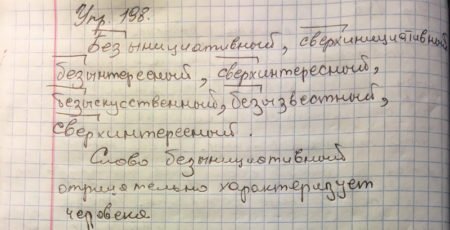 Упр. 198.
Безынициативный, сверхинициативный
безынтересный, сверхинтересный,
безыскусственный, безызвестный,
сверхинтересный.
Слово безынициативный
отрицательно характеризует
человека